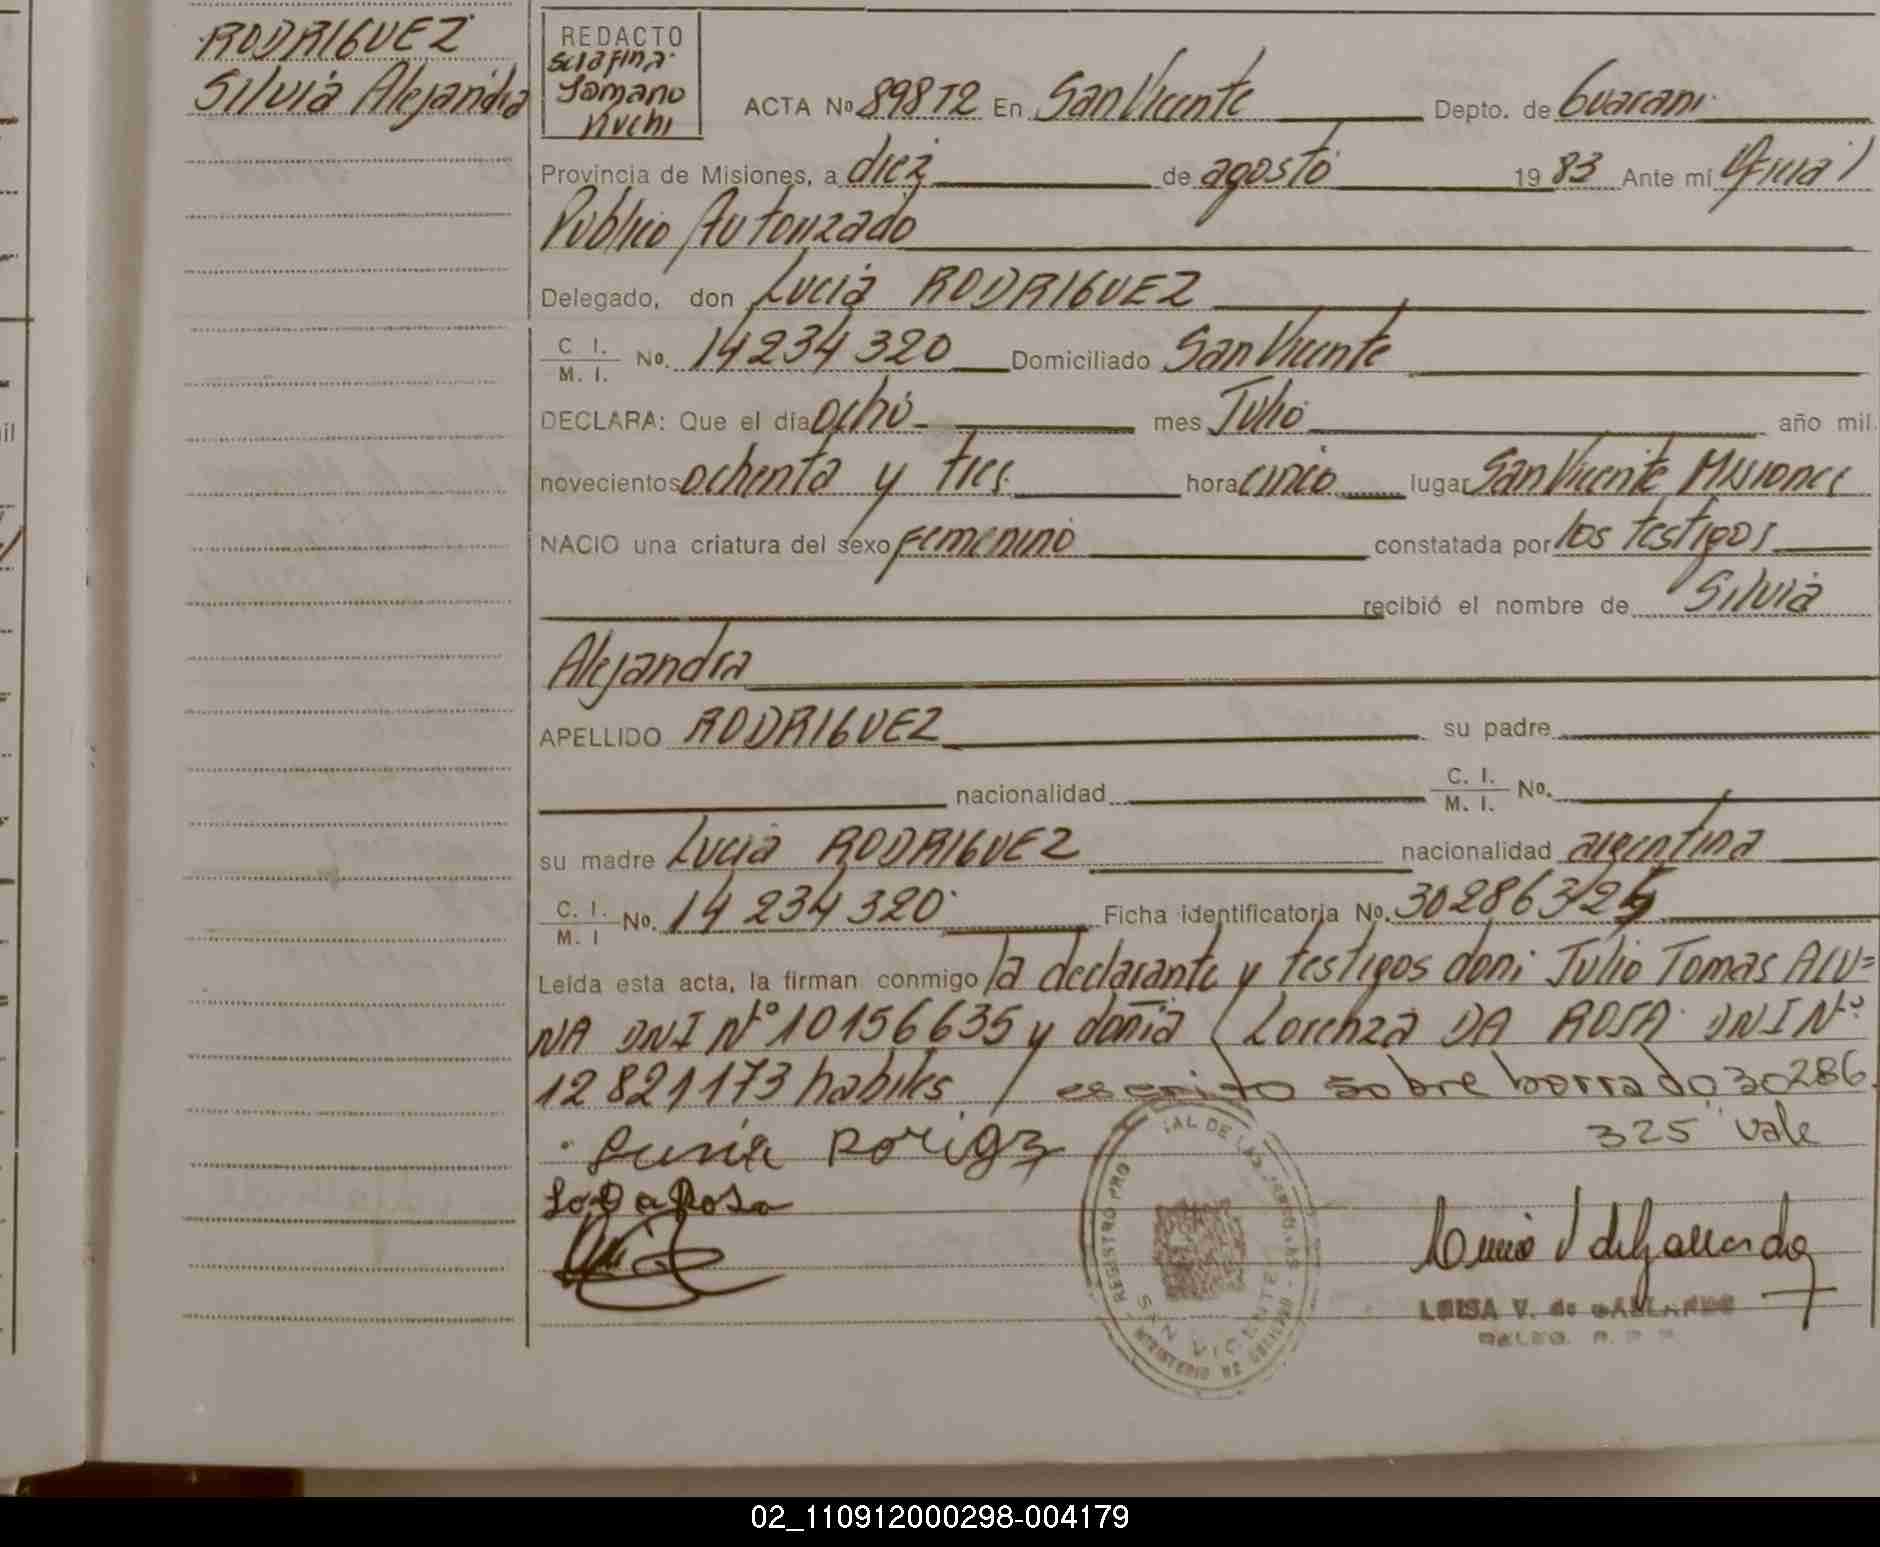 RODRIGUEZ
Silvia Alejandra
REDACTO
Serafina
Lomano
Kuchi
ACTA Nº 898 T2 En San Vicente Depto. de Guarani
Provincia de Misiones, a diez de agosto 19 83 Ante mí Oficial
Público Autorizado
Delegado, don Lucia RODRIGUEZ
C I. / M. I. Nº. 14234320 Domiciliado San Vicente
DECLARA: Que el día ocho mes Julio año mil
novecientos ochenta y tres hora cinco lugar San Vicente Misiones
NACIO una criatura del sexo femenino constatada por los testigos
recibió el nombre de Silvia
Alejandra
APELLIDO RODRIGUEZ su padre
nacionalidad C. I. / M. I. Nº.
su madre Lucia RODRIGUEZ nacionalidad argentina
C. I. / M. I Nº. 14 234 320 Ficha identificatoria Nº. 30286325
Leída esta acta, la firman conmigo la declarante y testigos don: Julio Tomas ACU=
ÑA DNI Nº 10156635 y doña Lorenza DA ROSA DNI Nº
12821173 habiles / escrito sobre borrado 30286
325" vale
Lucia Rorigz
Lo Da Rosa
REGISTRO PRO IAL DE LAS PERSONAS
SAN VICENTE
MINISTERIO DE GOBIERNO
LUISA V. de GALLARDO
DELEG. R. P.
02_110912000298-004179